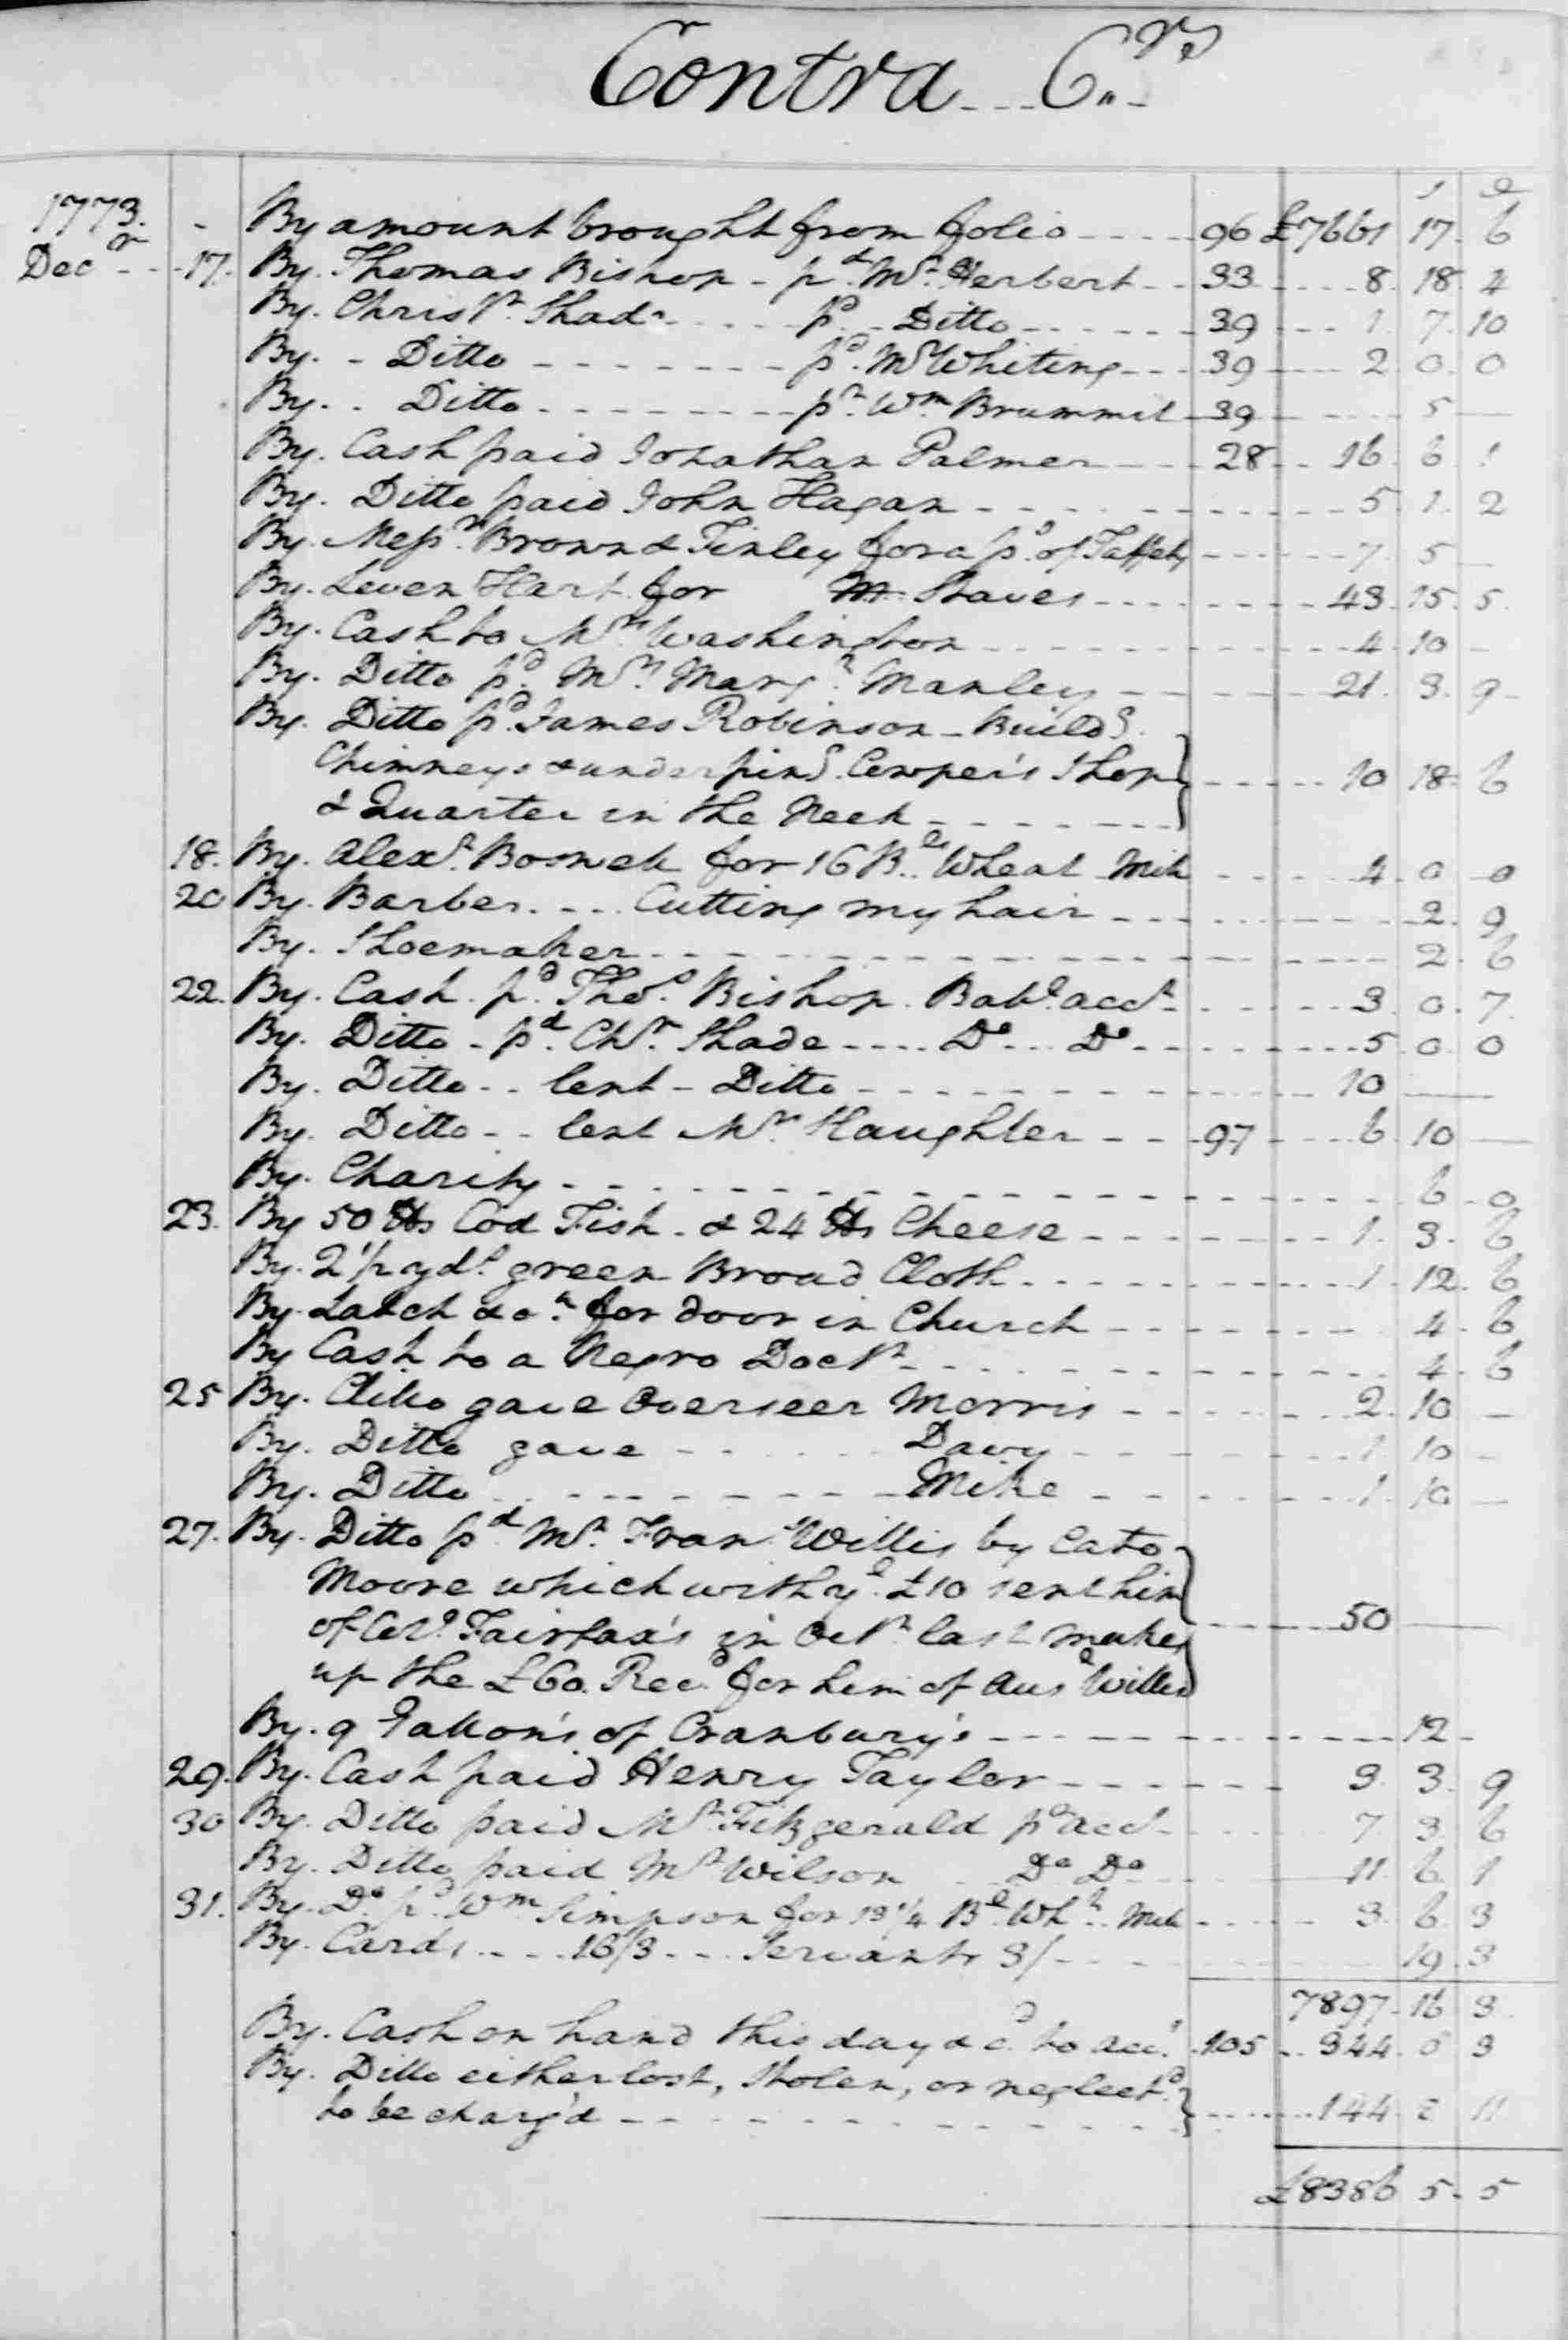 Contra Crs
s d
1773. - By amount brought from folio 96 £7661 17 6
Decr 17. By Thomas Bishop - pd Mr Herbert 33 8 18 4
By Christr Shade pd Ditto 39 1 7 10
By Ditto pd Mr Whiting 39 2 0 0
By Ditto pr Wm Brummit 39 5 —
By Cash paid Jonathan Palmer 28 16 6 1
By Ditto paid John Hagan 5 1 2
By Messrs Brown & Finley for a ps of Taffety 7 5 —
By Leven Hart for M Staves 43 15 5
By Cash to Mrs Washington 4 10 -
By Ditto pd Mrs Margt Manley 21 3 9
By Ditto pd James Robinson - Buildg
Chimneys & underping Cowper's Shop
& Quarter in the Neck 10 18 6
18. By Alexr Boswell for 16 Bls Wheat Mill 4 0 0
20 By Barber Cutting my hair 2 9
By Shoemaker 2 6
22. By Cash pd Thos Bishop Bale acct 3 0 7
By Ditto pd Chr Shade Do Do 5 0 0
By Ditto lent Ditto 10 —
By Ditto lent Mr Slaughter 97 6 10 —
By Charity 6 0
23. By 50 lbs Cod Fish & 24 lbs Cheese 1 3 6
By 2 1/2 yds green Broad Cloth 1 12 6
By Latch &ca for door in Church 4 6
By Cash to a Negro Doctr 4 6
25 By Ditto gave Overseer Morris 2 10 —
By Ditto gave Davy 1 10 -
By Ditto Mike 1 10 —
27. By Ditto pd Mr Frans Willis by Cato
Moore which with ye £10 sent him
of Colo Fairfax's in Octr last makes
up the £60 Recd for him of Willis 50 —
By 9 Gallon's of Cranbury's 12 -
29. By Cash paid Henry Taylor 3 3 9
30 By Ditto paid Mr Fitzgerald pr acct 7 3 6
By Ditto paid Mr Wilson Do Do 11 6 1
31. By Do pd Wm Simpson for 13 1/4 Bls Wht Mill 3 6 3
By Cards 16/3 Servants 3/ 19 3
7897 16 3
By Cash on hand this day & cd to acct 105 344 6 3
By Ditto either lost, stolen, or neglectd
to be charg'd 144 2 11
£8386 5 5